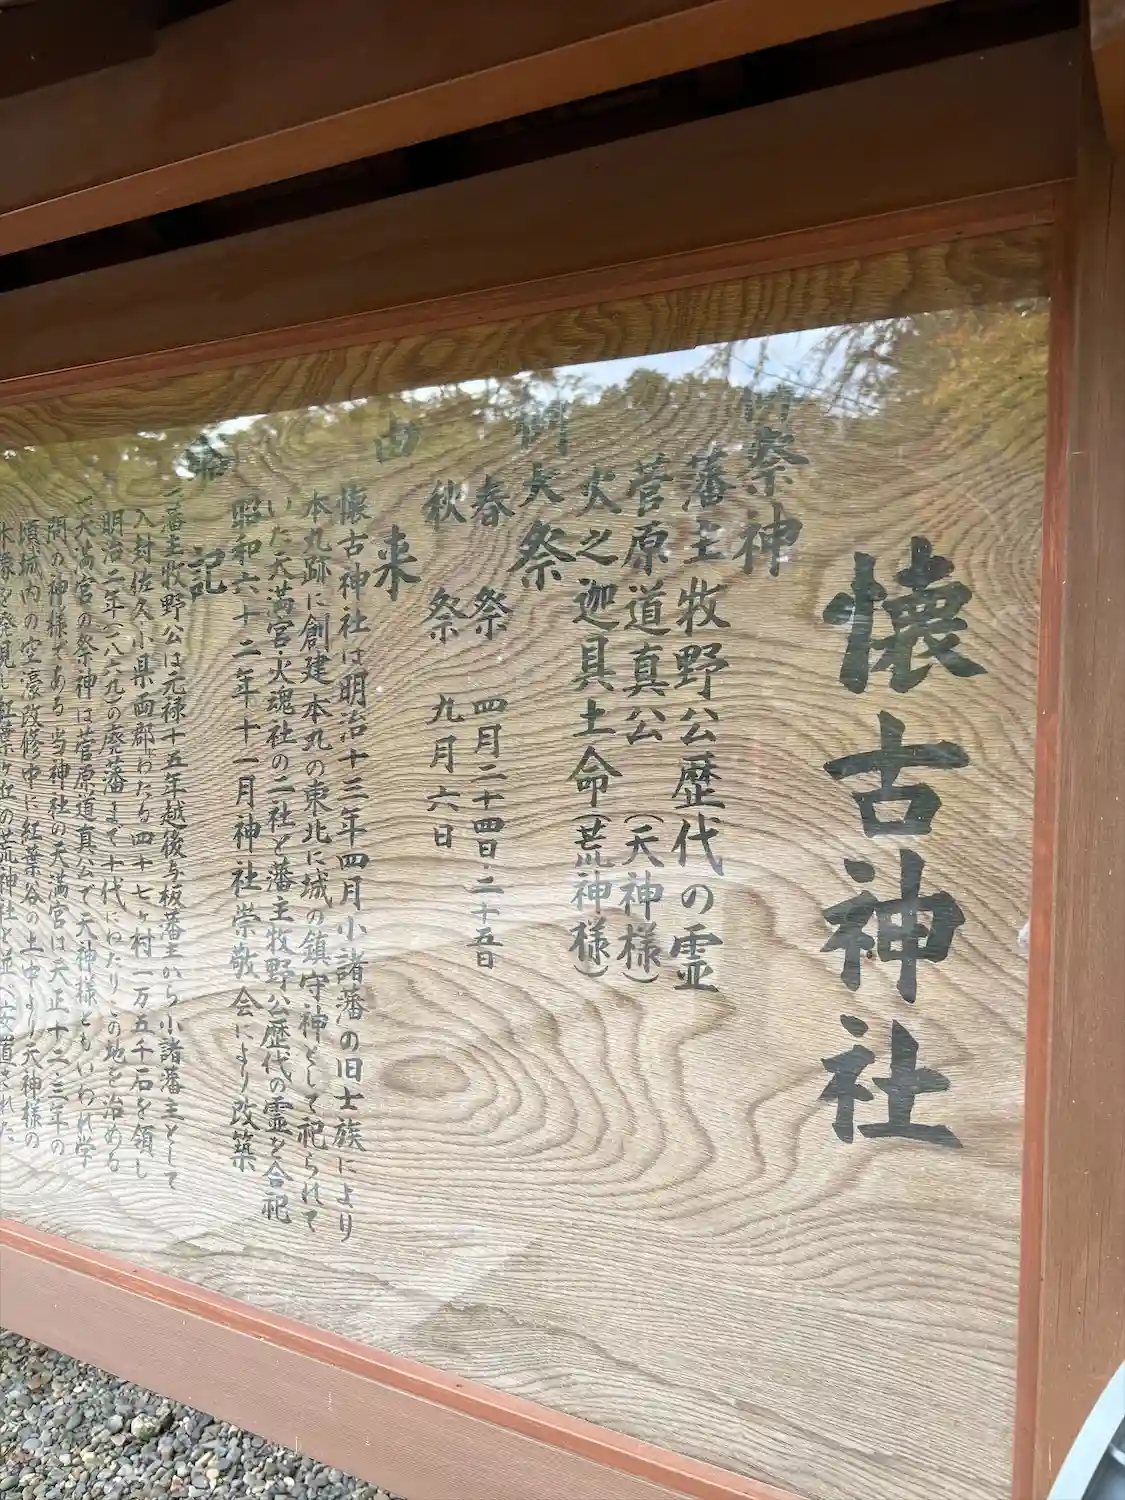 懐古神社
御祭神
藩主牧野公歴代の霊
菅原道真公（天神様）
火之迦具土命（荒神様）
例大祭
春祭 四月二十四日・二十五日
秋祭 九月六日
由来
懐古神社は明治十三年四月小諸藩の旧士族により
本丸跡に創建本丸の東北に城の鎮守神として祀られて
いた天満宮・火魂社の二社と藩主牧野公歴代の霊を合祀
昭和六十二年十一月神社崇敬会により改築
略記
一、藩主牧野公は元禄十五年越後与板藩主から小諸藩主として
入封佐久小県両郡わたる四十七ヶ村一万五千石を領し
明治二年（一八六九）の廃藩まで十代にわたりこの地を治める
一、天満宮の祭神は菅原道真公で天神様ともいわれ学
問の神様である当神社の天満宮は天正十二三年の
頃城内の空濠改修中に紅葉谷の土中より天神様の
木像を発見し紅葉ヶ丘の荒神社と並べ安置された